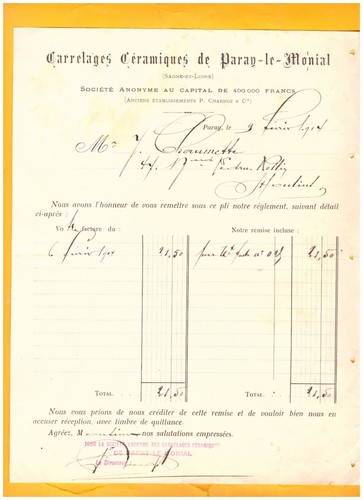 Carrelages Céramiques de Paray-le-Monial
(SAÔNE-ET-LOIRE)
SOCIÉTÉ ANONYME AU CAPITAL DE 400.000 FRANCS
(ANCIENS ÉTABLISSEMENTS P. CHARNOZ & Cie)
Paray, le 9 février 1904
Mr J. Chaumette
Nous avons l'honneur de vous remettre sous ce pli notre règlement, suivant détail
ci-après :
Vo facture du :
Notre remise incluse :
6 février 1904 21,50
21,50
TOTAL 21,50
TOTAL 21,50
Nous vous prions de nous créditer de cette remise et de vouloir bien nous en
accuser réception, avec timbre de quittance.
Agréez, M nos salutations empressées.
POUR LA SOCIÉTÉ ANONYME DES CARRELAGES CÉRAMIQUES
DE PARAY-LE-MONIAL
Le Directeur